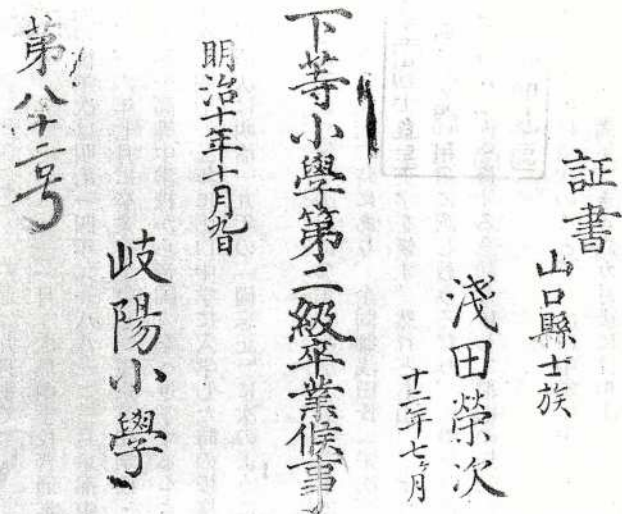 証書
山口縣士族
淺田榮次
十二年七ヶ月
下等小學第二級卒業候事
明治十年十月九日
岐陽小學
第八十二号